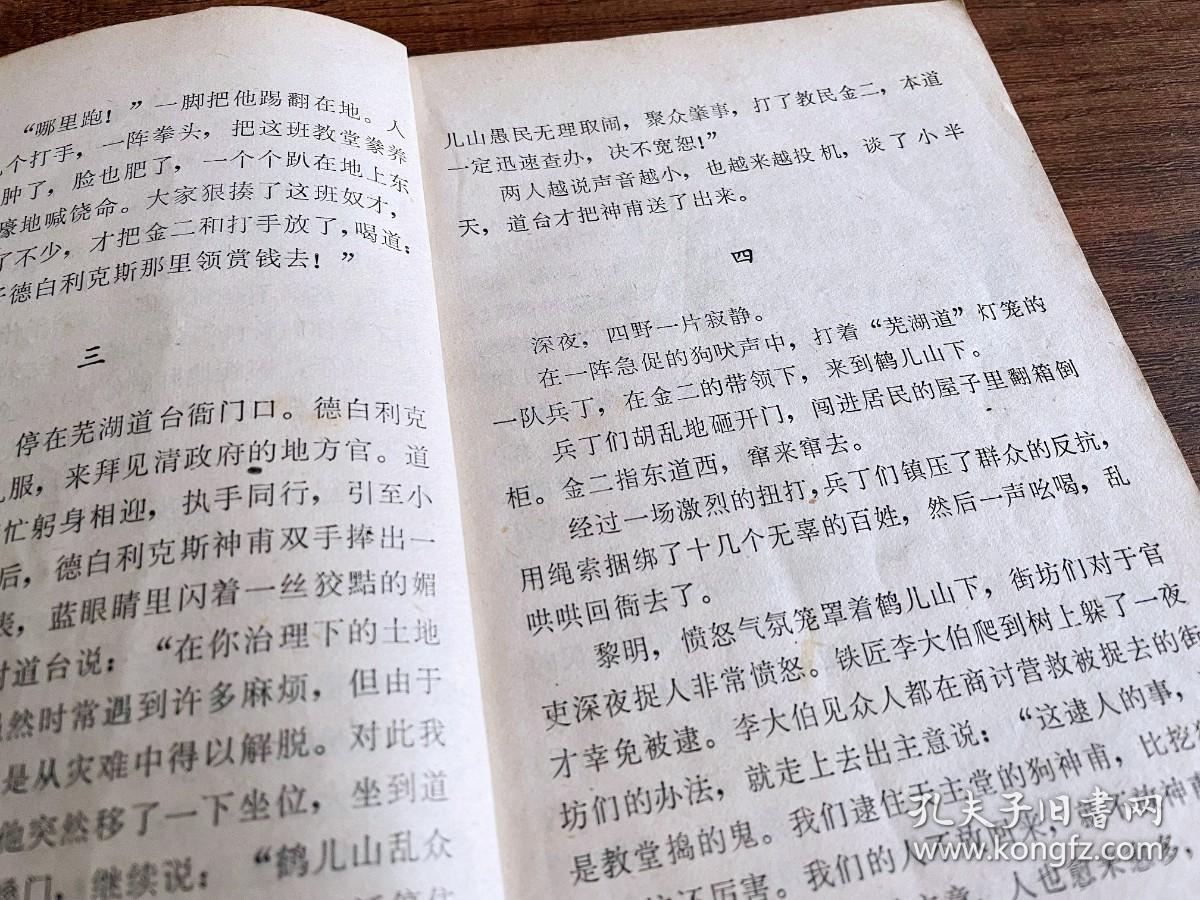 “哪里跑！”一脚把他踢翻在地。人
个打手，一阵拳头，把这班教堂豢养
肿了，脸也肥了，一个个趴在地上东
嚎地喊饶命。大家狠揍了这班奴才，
了不少，才把金二和打手放了，喝道：
德白利克斯那里领赏钱去！”
三
停在芜湖道台衙门口。德白利克
服，来拜见清政府的地方官。道
忙躬身相迎，执手同行，引至小
后，德白利克斯神甫双手捧出一
表，蓝眼睛里闪着一丝狡黠的媚
对道台说：“在你治理下的土地
虽然时常遇到许多麻烦，但由于
是从灾难中得以解脱。对此我
他突然移了一下坐位，坐到道
门，继续说：“鹤儿山乱众
儿山愚民无理取闹，聚众肇事，打了教民金二，本道
一定迅速查办，决不宽恕！”
两人越说声音越小，也越来越投机，谈了小半
天，道台才把神甫送了出来。
四
深夜，四野一片寂静。
在一阵急促的狗吠声中，打着“芜湖道”灯笼的
一队兵丁，在金二的带领下，来到鹤儿山下。
兵丁们胡乱地砸开门，闯进居民的屋子里翻箱倒
柜。金二指东道西，窜来窜去。
经过一场激烈的扭打，兵丁们镇压了群众的反抗，
用绳索捆绑了十几个无辜的百姓，然后一声吆喝，乱
哄哄回衙去了。
黎明，愤怒气氛笼罩着鹤儿山下，街坊们对于官
吏深夜捉人非常愤怒。铁匠李大伯爬到树上躲了一夜
才幸免被逮。李大伯见众人都在商讨营救被捉去的街
坊们的办法，就走上去出主意说：“这逮人的事，
是教堂捣的鬼。我们逮住天主堂的狗神甫，比挖
还厉害。我们的人不放回来，
人也愈来愈多，
孔夫子旧书网
www.kongfz.com